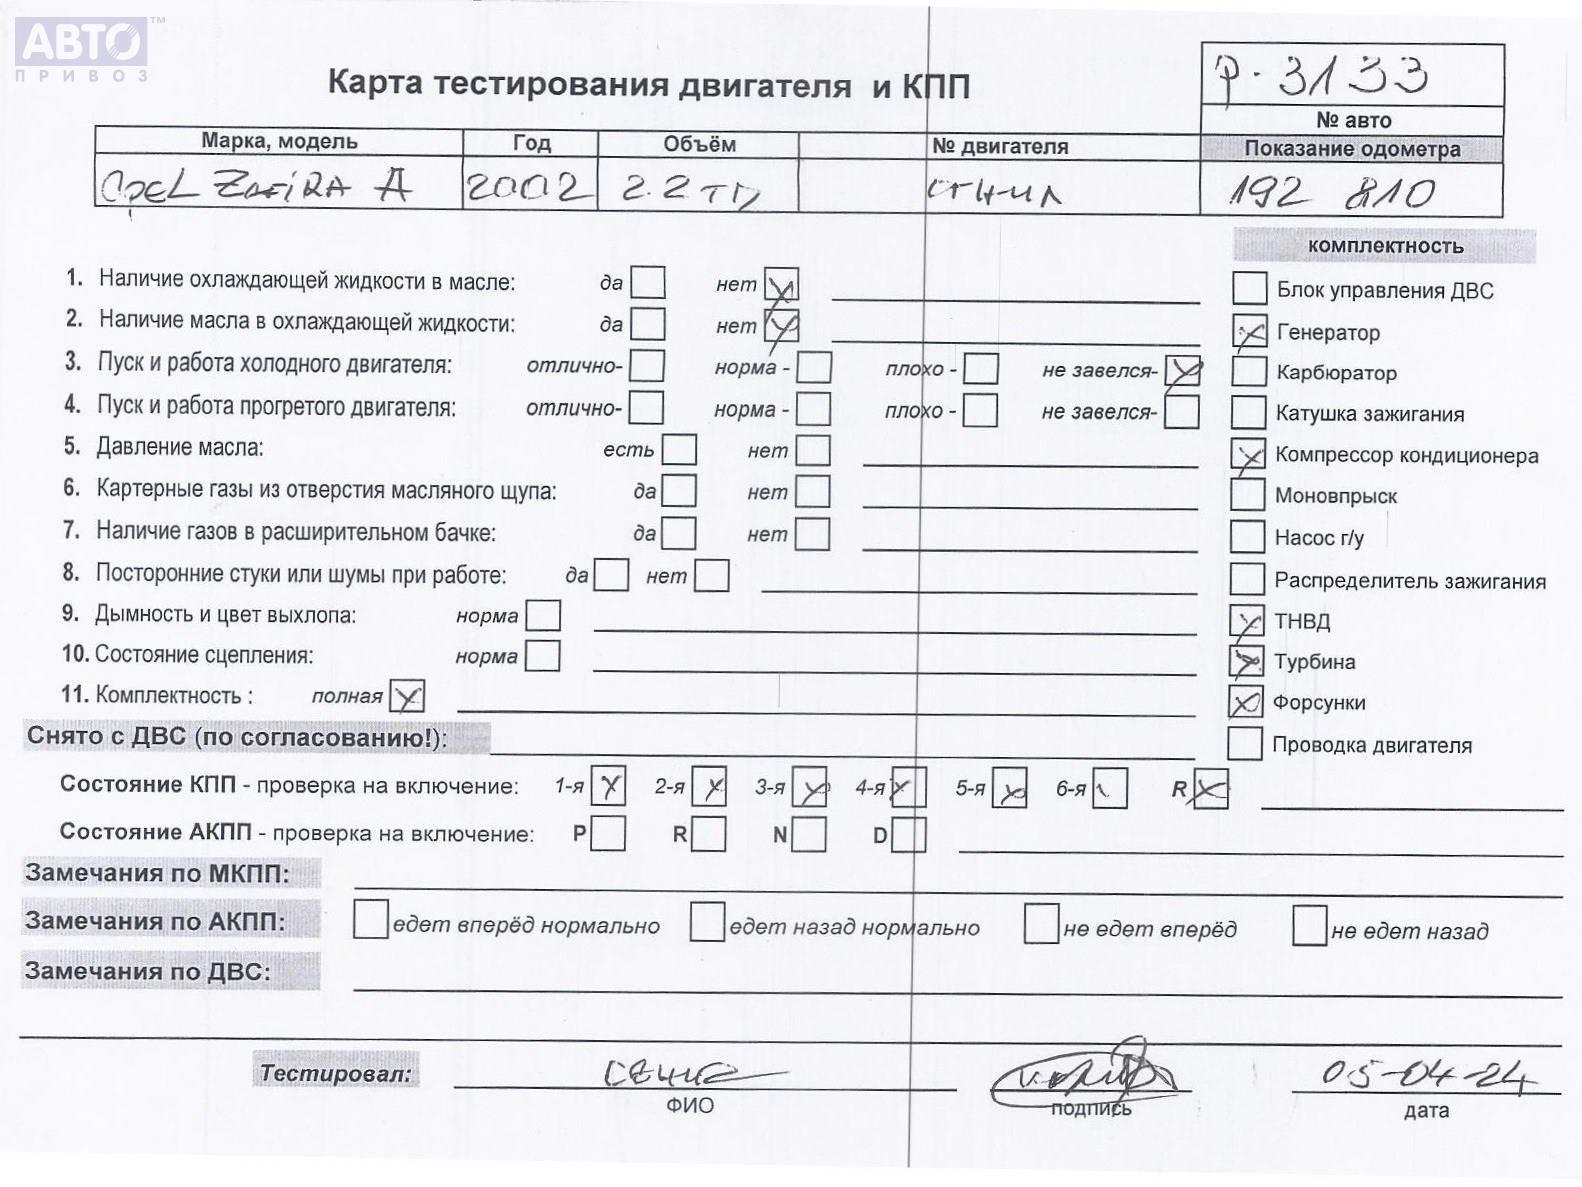 АВТО™
ПРИВОЗ
Карта тестирования двигателя и КПП
P-3133
№ авто
Марка, модель Год Объём № двигателя Показание одометра
OpeL ZafiRA A 2002 2.2 тд сгнил 192 810
комплектность
1. Наличие охлаждающей жидкости в масле: да нет
Блок управления ДВС
2. Наличие масла в охлаждающей жидкости: да нет
Генератор
3. Пуск и работа холодного двигателя: отлично- норма - плохо - не завелся-
Карбюратор
4. Пуск и работа прогретого двигателя: отлично- норма - плохо - не завелся-
Катушка зажигания
5. Давление масла: есть нет
Компрессор кондиционера
6. Картерные газы из отверстия масляного щупа: да нет
Моновпрыск
7. Наличие газов в расширительном бачке: да нет
Насос г/у
8. Посторонние стуки или шумы при работе: да нет
Распределитель зажигания
9. Дымность и цвет выхлопа: норма
ТНВД
10. Состояние сцепления: норма
Турбина
11. Комплектность : полная
Форсунки
Снято с ДВС (по согласованию!):
Проводка двигателя
Состояние КПП - проверка на включение: 1-я 2-я 3-я 4-я 5-я 6-я R
Состояние АКПП - проверка на включение: P R N D
Замечания по МКПП:
Замечания по АКПП: едет вперёд нормально едет назад нормально не едет вперёд не едет назад
Замечания по ДВС:
Тестировал: 05-04-24
ФИО подпись дата